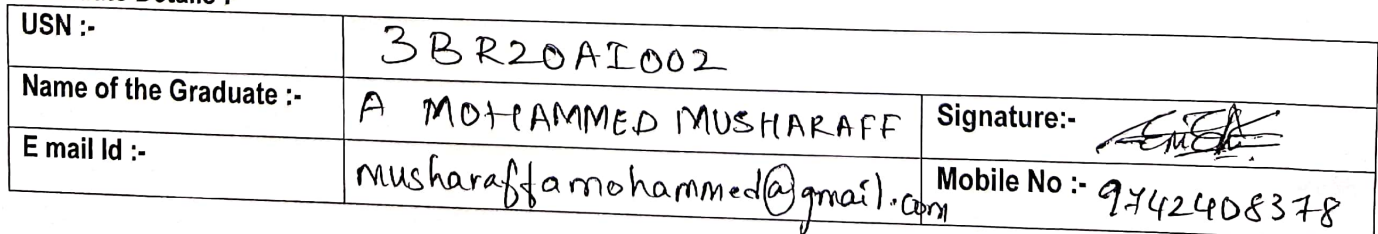 USN :- 3BR20AI002
Name of the Graduate :- A MOHAMMED MUSHARAFF Signature:-
E mail Id :- musharaffamohammed@gmail.com Mobile No :- 9742408378